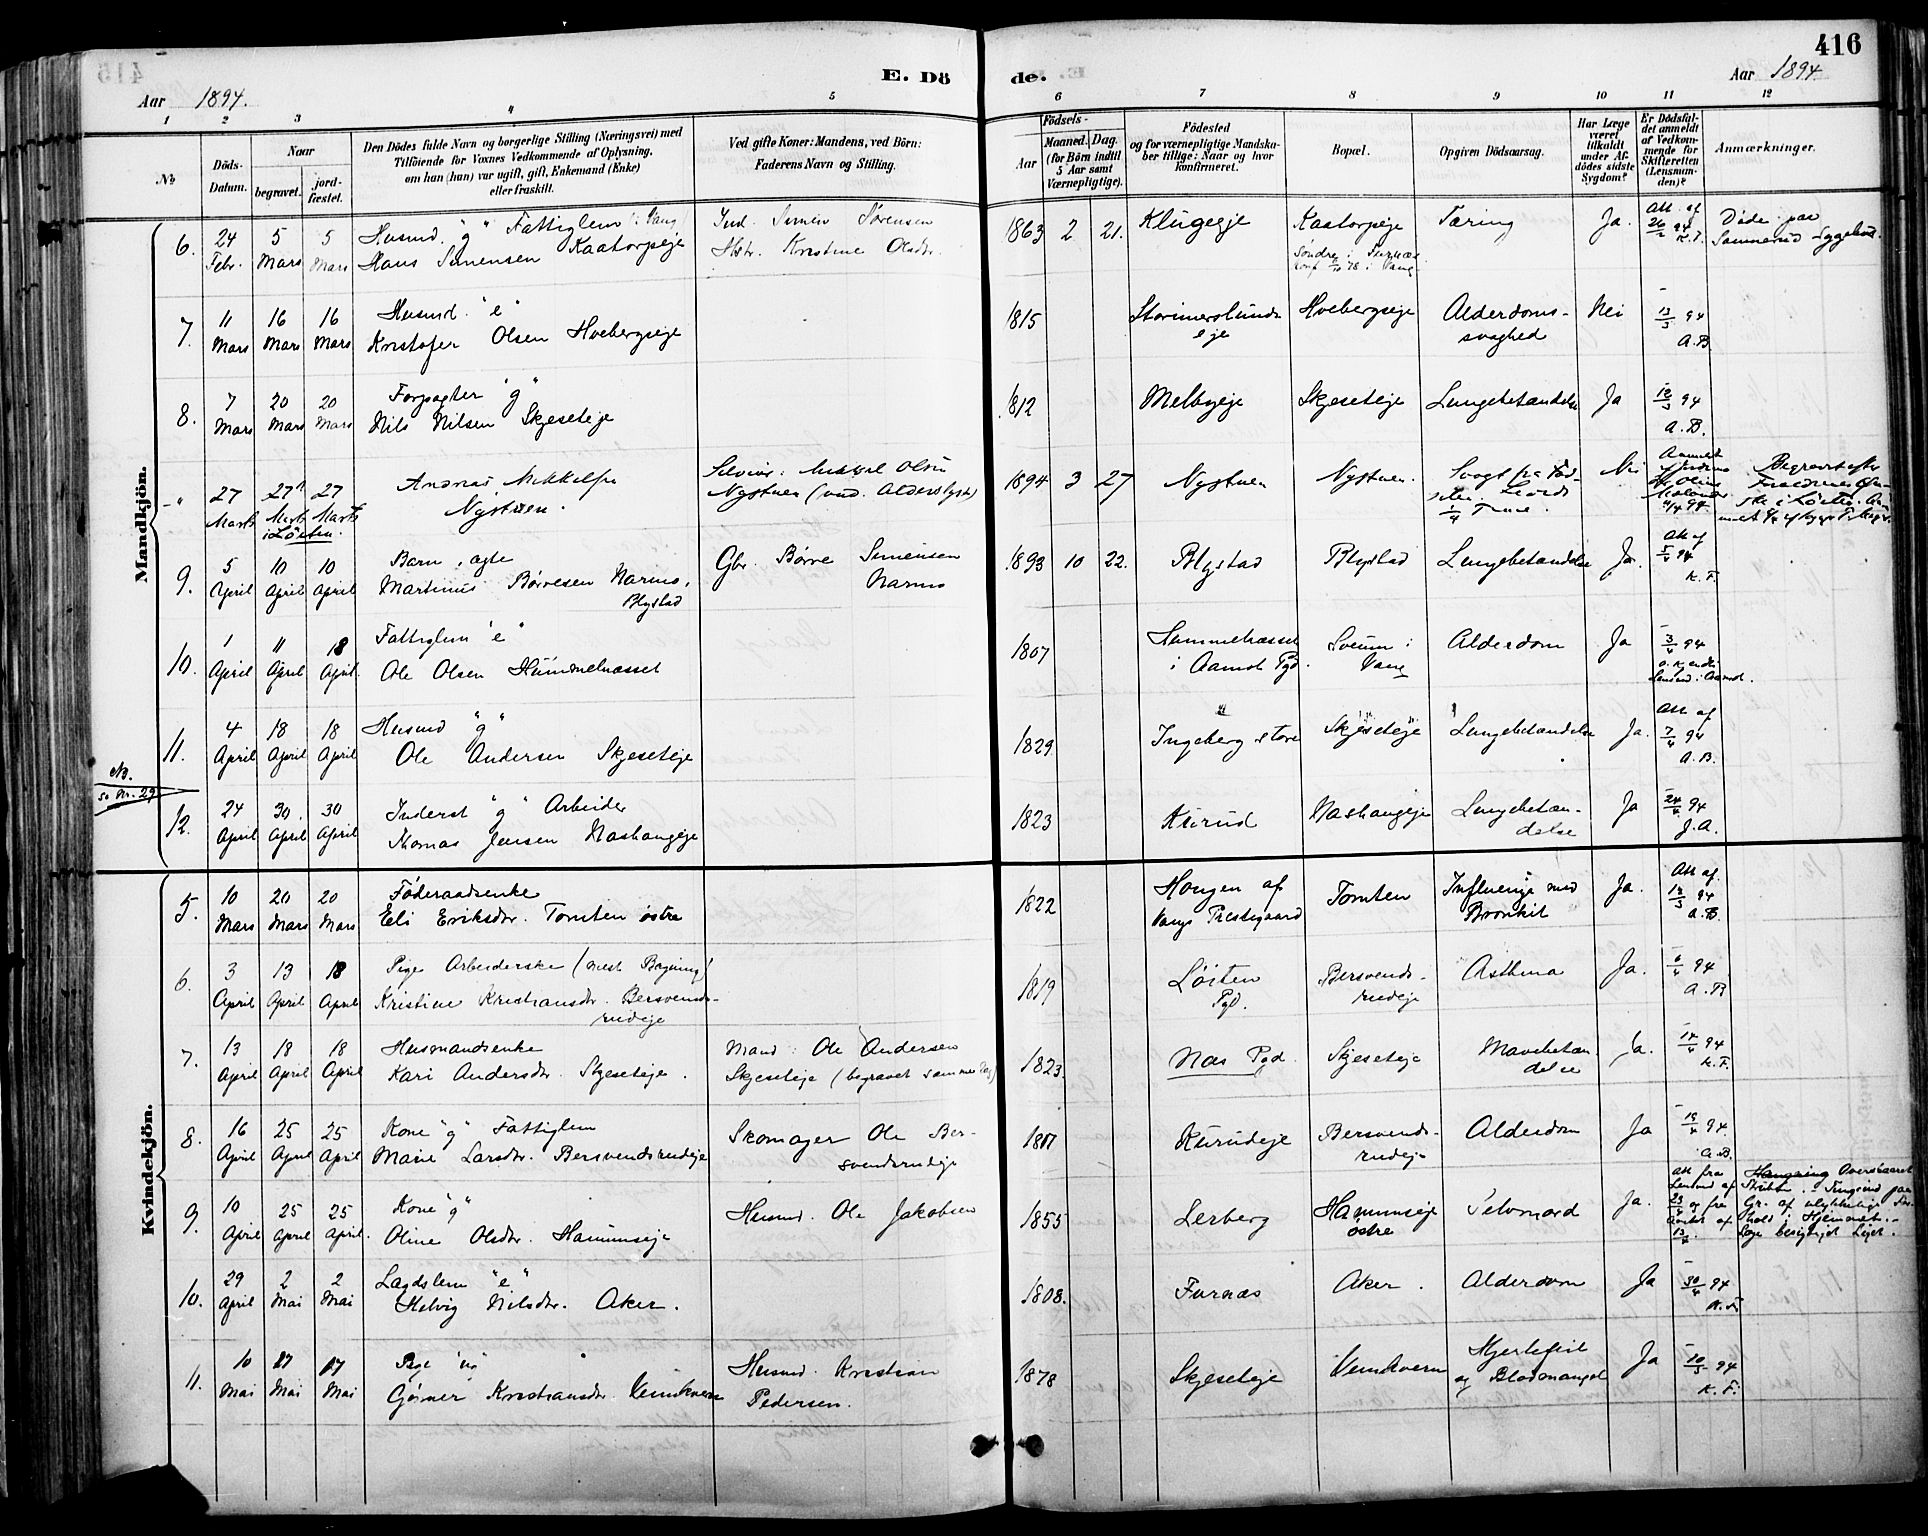 416
E. Dö
de.
Aar 1894.
Aar 1894.
1 2 3 4 5 6 7 8 9 10 11 12
No.
Döds-Datum.
Naar
begravet.
jord-fæstet.
Den Dödes fulde Navn og borgerlige Stilling (Næringsvei) med
Tilföiende for Voxnes Vedkommende af Oplysning,
om han (hun) var ugift, gift, Enkemand (Enke)
eller fraskilt.
Ved gifte Koner: Mandens, ved Börn:
Faderens Navn og Stilling.
Födsels-
Aar
Maaned. Dag.
(for Börn indtil
5 Aar samt
Værnepligtige).
Födested
og for værnepligtige Mandska-
ber tillige: Naar og hvor
konfirmeret.
Bopæl.
Opgiven Dödsaarsag.
Har Læge
været
tilkaldt
under Af-
dödes sidste
Sygdom?
Er Dödsfal-
det anmeldt
af Vedkom-
mende for
Skifteretten
(Lensman-
den)?
Anmærkninger.
Mandkjön.
6. 24 Febr. 5 Mars 5 Mars
Husmd. "g" Fattiglem i Vang
Hans Simensen Kaatorpseje
Ind. Simen Sørensen
Hstr. Kristine Olsdr.
1863 2 21. Klugeje Kaatorpseje Tæring Ja. Att. af 26/2 94 K.F.
Søndre i Furnæs
Konf. 6/10 78 i Vang
Døde paa
Sannerud Sygehus.
7. 11 Mars 16 Mars 16 Mars
Husmd. "e"
Kristofer Olsen Hvebergseje
1815 Hvebergseje Alderdoms-
svaghed Nei 13/3 94 A.B.
8. 7 Mars 20 Mars 20 Mars
Forpagter "g"
Nils Nilsen Skjeseteje
1812 Melbyeje Skjeseteje Lungebetændelse Ja 12/3 94 A.B.
-"- 27 Marts 27 Marts 27 Marts
i Løiten.
Andreas Mikkelsen
Nystuen.
Selveier: Mikkel Olsen
Nystuen
1894 3 27 Nystuen Nystuen. Nei
9. 5 April 10 April 10 April
Barn, ægte
Martinus Børresen Narmo,
Blystad
Gbr. Børre Simensen
Narmo
1893 10 22. Blystad Blystad Lungebetændelse Ja. Att af 5/4 94 K.F.
10. 1 April 11 April 18 April
Fattiglem "e"
Ole Olsen Hummelnæsset
1807 Hummelnæsset
i Aamot Pgd. Sveum i
Vang Alderdom Ja 3/4 94
Lensmd. i Aamot.
11. 4 April 18 April 18 April
Husmd "g"
Ole Andersen Skjeseteje
1829 Ingeberg store Skjeseteje Lungebetændelse Ja. Att af 7/4 94 A.B.
NB.
se Nr. 29
12. 24 April 30. April 30 April
Inderst "g" Arbeider
Thomas Jensen Nashaugeje
1823 Kurud Nashaugeje Lungebetæn-
delse Ja 24/4 94 J.A.
Kvindekjön.
5. 10 Mars 20 Mars 20 Mars
Føderaadsenke
Eli Eriksdr. Tomten østre
1822 Haugen af
Vangs Prestegaard Tomten Influenza med
Bronkit Ja. Att af 12/3 94 A.B.
6. 3 April 13 April 18 April
Pige Arbeiderske
Kristine Kristiansdr. Bersvends-
rudeje
1819 Løiten
Pgd. Bersvends-
rudeje Asthma Ja. 6/4 94 A.B
7. 13 April 18 April 18 April
Husmandsenke
Kari Andersdr. Skjeseteje.
Mand: Ole Andersen
Skjeseteje (begravet samme Dag)
1823. Næs Pgd. Skjeseteje Mavebetæn-
delse Ja. 14/4 94 K.F.
8. 16 April 25 April 25 April
Kone "g" Fattiglem
Marie Larsdr. Bersvendsrudeje
Skomager Ole Ber-
svendsrudeje
1817 Kurudeje Bersvends-
rudeje Alderdom Ja 19/4 94. A.B.
9. 10 April 25 April 25 April.
Kone "g"
Oline Olsdr. Hamumseje
Husmd. Ole Jakobsen
1855 Lerberg Hamumseje
østre Selvmord Ja. Att fra
Lensmd af
23/4 og fra
af
13/4
Overskaaret
Struben.
Gr. af ulykkelige For-
hold i Hjemmet.
Læge besigtiget Liget.
10. 29 April 2 Mai 2 Mai
Lægdslem "e"
Helvig Nilsdr. Aker.
1808. Furnæs Aker. Alderdom Ja 30/4 94 K.F.
11. 10 Mai 17 Mai 17 Mai
Pige "ug"
Gørner Kristiansdr. Venkvern
Husmd. Kristian
Pedersen.
1878 Skjeseteje Venkvern Hjertefeil
og Blodmangel Ja 10/5 94 K.F.